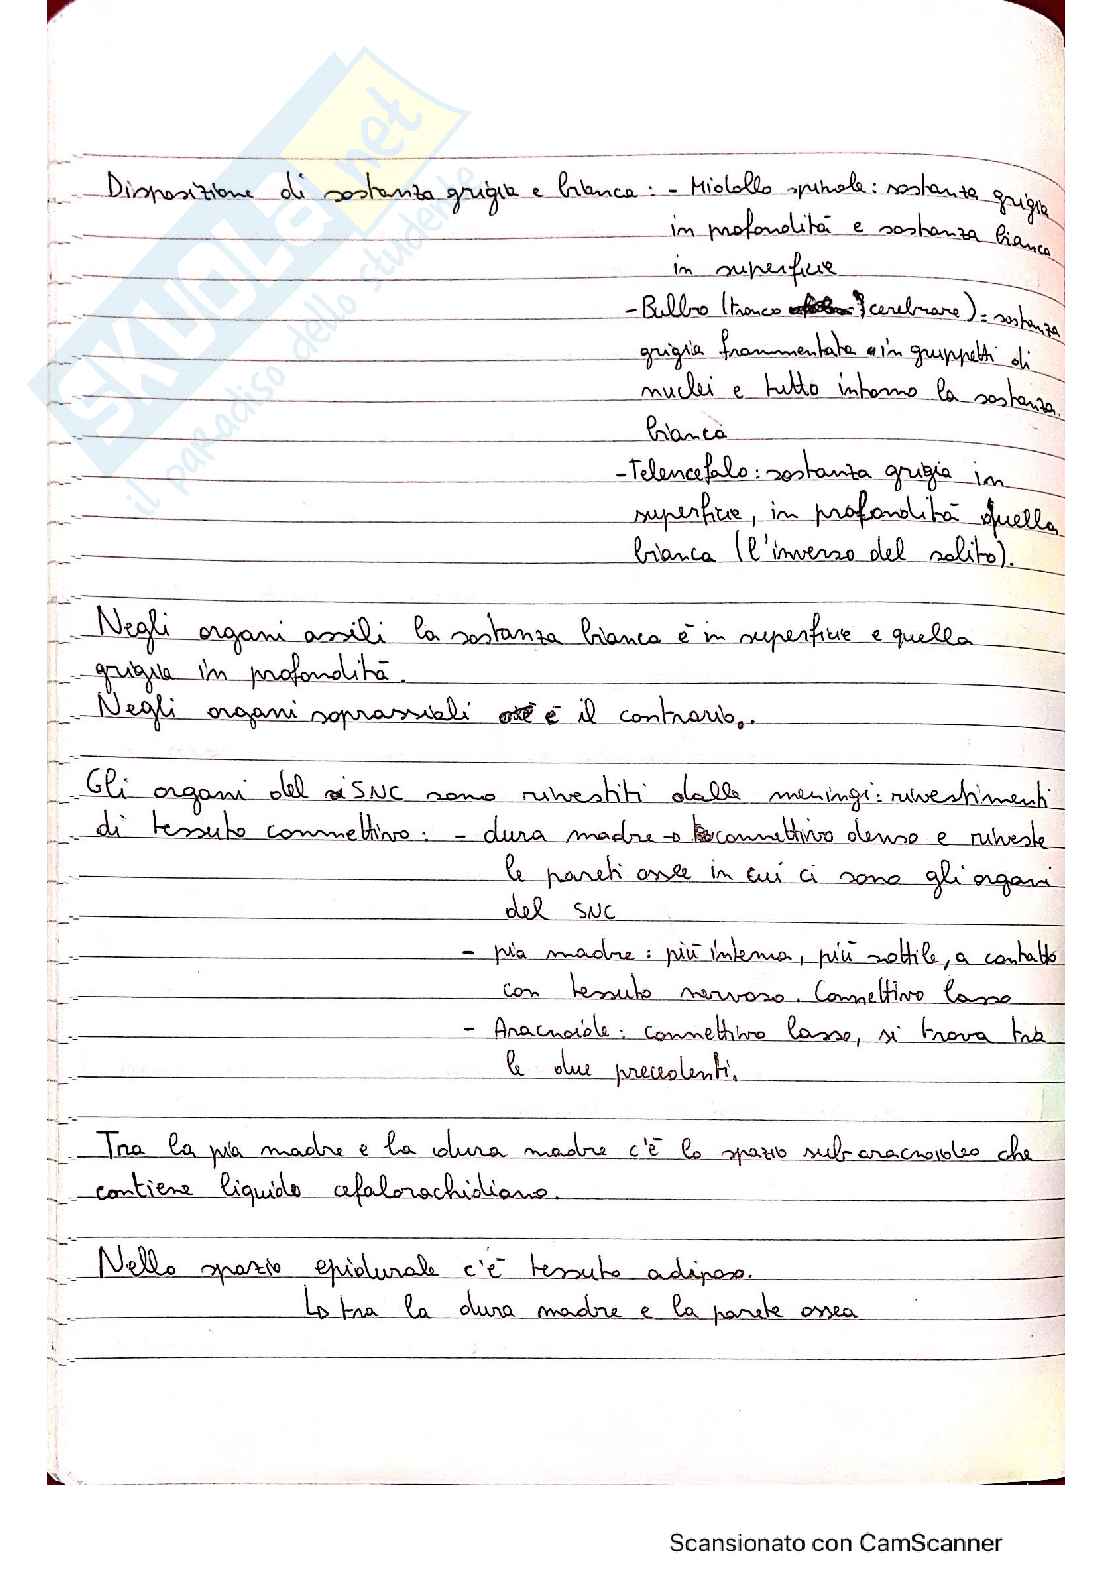 SKUOLA.net
il paradiso dello studente
Disposizione di sostanza grigia e bianca: - Midollo spinale: sostanza grigia
in profondità e sostanza bianca
in superficie
- Bulbo (tronco cerebrare): sostanza
grigia frammentata in gruppetti di
nuclei e tutto intorno la sostanza
bianca
- Telencefalo: sostanza grigia in
superficie, in profondità quella
bianca (l'inverso del solito).
Negli organi assili la sostanza bianca è in superficie e quella
grigia in profondità.
Negli organi soprassiali è il contrario.
Gli organi del SNC sono rivestiti dalle meningi: rivestimenti
di tessuto connettivo: - dura madre → connettivo denso e riveste
le pareti ossee in cui ci sono gli organi
del SNC
- pia madre: più interna, più sottile, a contatto
con tessuto nervoso. Connettivo lasso
- Aracnoide: connettivo lasso, si trova tra
le due precedenti.
Tra la pia madre e la dura madre c'è lo spazio sub-aracnoideo che
contiene liquido cefalorachidiano.
Nello spazio epidurale c'è tessuto adiposo.
↳ tra la dura madre e la parete ossea
Scansionato con CamScanner